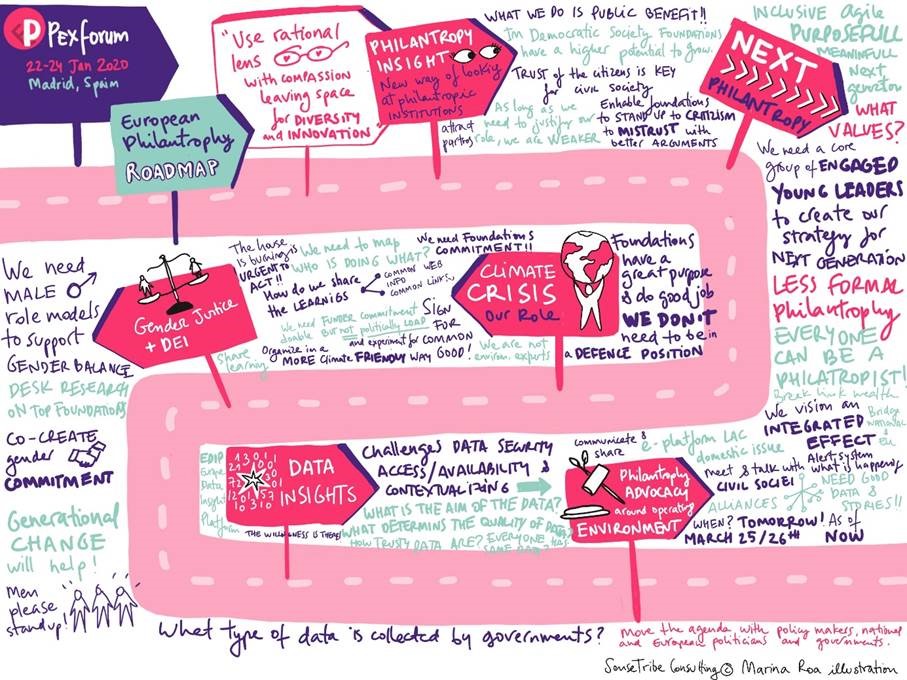 PEXforum
22-24 Jan 2020
Madrid, Spain
European
Philanthropy
ROADMAP
"Use rational
lens
with compassion
leaving space
for DIVERSITY
and INNOVATION"
PHILANTROPY
INSIGHT
New way of looking
at philantropic
INSTITUTIONS
attract
parters
WHAT WE DO IS PUBLIC BENEFIT!!
In Democratic Society Foundations
have a higher potential to grow.
TRUST of the citizens is KEY
for civil society
As long as we
need to justify our
role, we are WEAKER
Enhable foundations
to STAND UP to CRITLISM
to MISTRUST with
better ARGUMENTS
NEXT
PHILANTROPY
INCLUSIVE Agile
PURPOSEFULL
MEANINFULL
Next
WHAT
VALUES?
We need a core
group of ENGAGED
YOUNG LEADERS
to create our
strategy for
NEXT GENERATION
LESS FORMAL
philantropthy
EVERYONE
CAN BE A
PHILATROPIST!
Break link wealth
We vision an
INTEGRATED
EFFECT
Bridge
NATIONAL
& EU
Alert system
what is happening
NEED GOOD
DATA &
STORIES!!
As of
NOW
Gender Justice
+ DEI
We need
MALE
role models
to support
GENDER BALANCE
DESK RESEARCH
ON TOP FOUNDATIONS
CO-CREATE
gender
COMMITMENT
Generational
CHANGE
will help!
Men
please
standup!
share
learning
The house
is burning is
URGENT TO
ACT!!
We need to map
WHO IS DOING WHAT?
How do we share
the LEARNIGS
COMMON WEB
INFO
COMMON LINKS
We need Foundations
COMMITMENT!!
We need FUNDER Commitment
doable But not politically LOAD
SIGN
FOR
and experiment for COMMON
Organize in a
MORE Climate FRIENDLY WAY GOOD!
We are not
environ. experts
CLIMATE
CRISIS
Our Role
Foundations
have a
great purpose
& do good job
WE DON'T
need to be in
a DEFENCE POSITION
EDIP
Europe
Data
Insight
Platform
DATA
INSIGHTS
THE WILLINGNESS IS THERE!
Challenges DATA SECURITY
ACCESS/AVAILABILITY &
CONTEXTUALIZING
WHAT IS THE AIM OF THE DATA?
WHAT DETERMINS THE QUALITY OF DATA?
HOW TRUSTY DATA ARE? EVERYONE
communicate &
share
Philanthropy
ADVOCACY
around operating
ENVIRONMENT
e-platform LAC
domestic issue
meet & talk with
CIVIL SOCIETI
ALLIANCES
WHEN? TOMORROW!
MARCH 25/26TH
What type of data is collected by governments?
Move the agenda with policy makers, national
and European politicians and governments.
SenseTribe Consulting© Marina Roa illustration